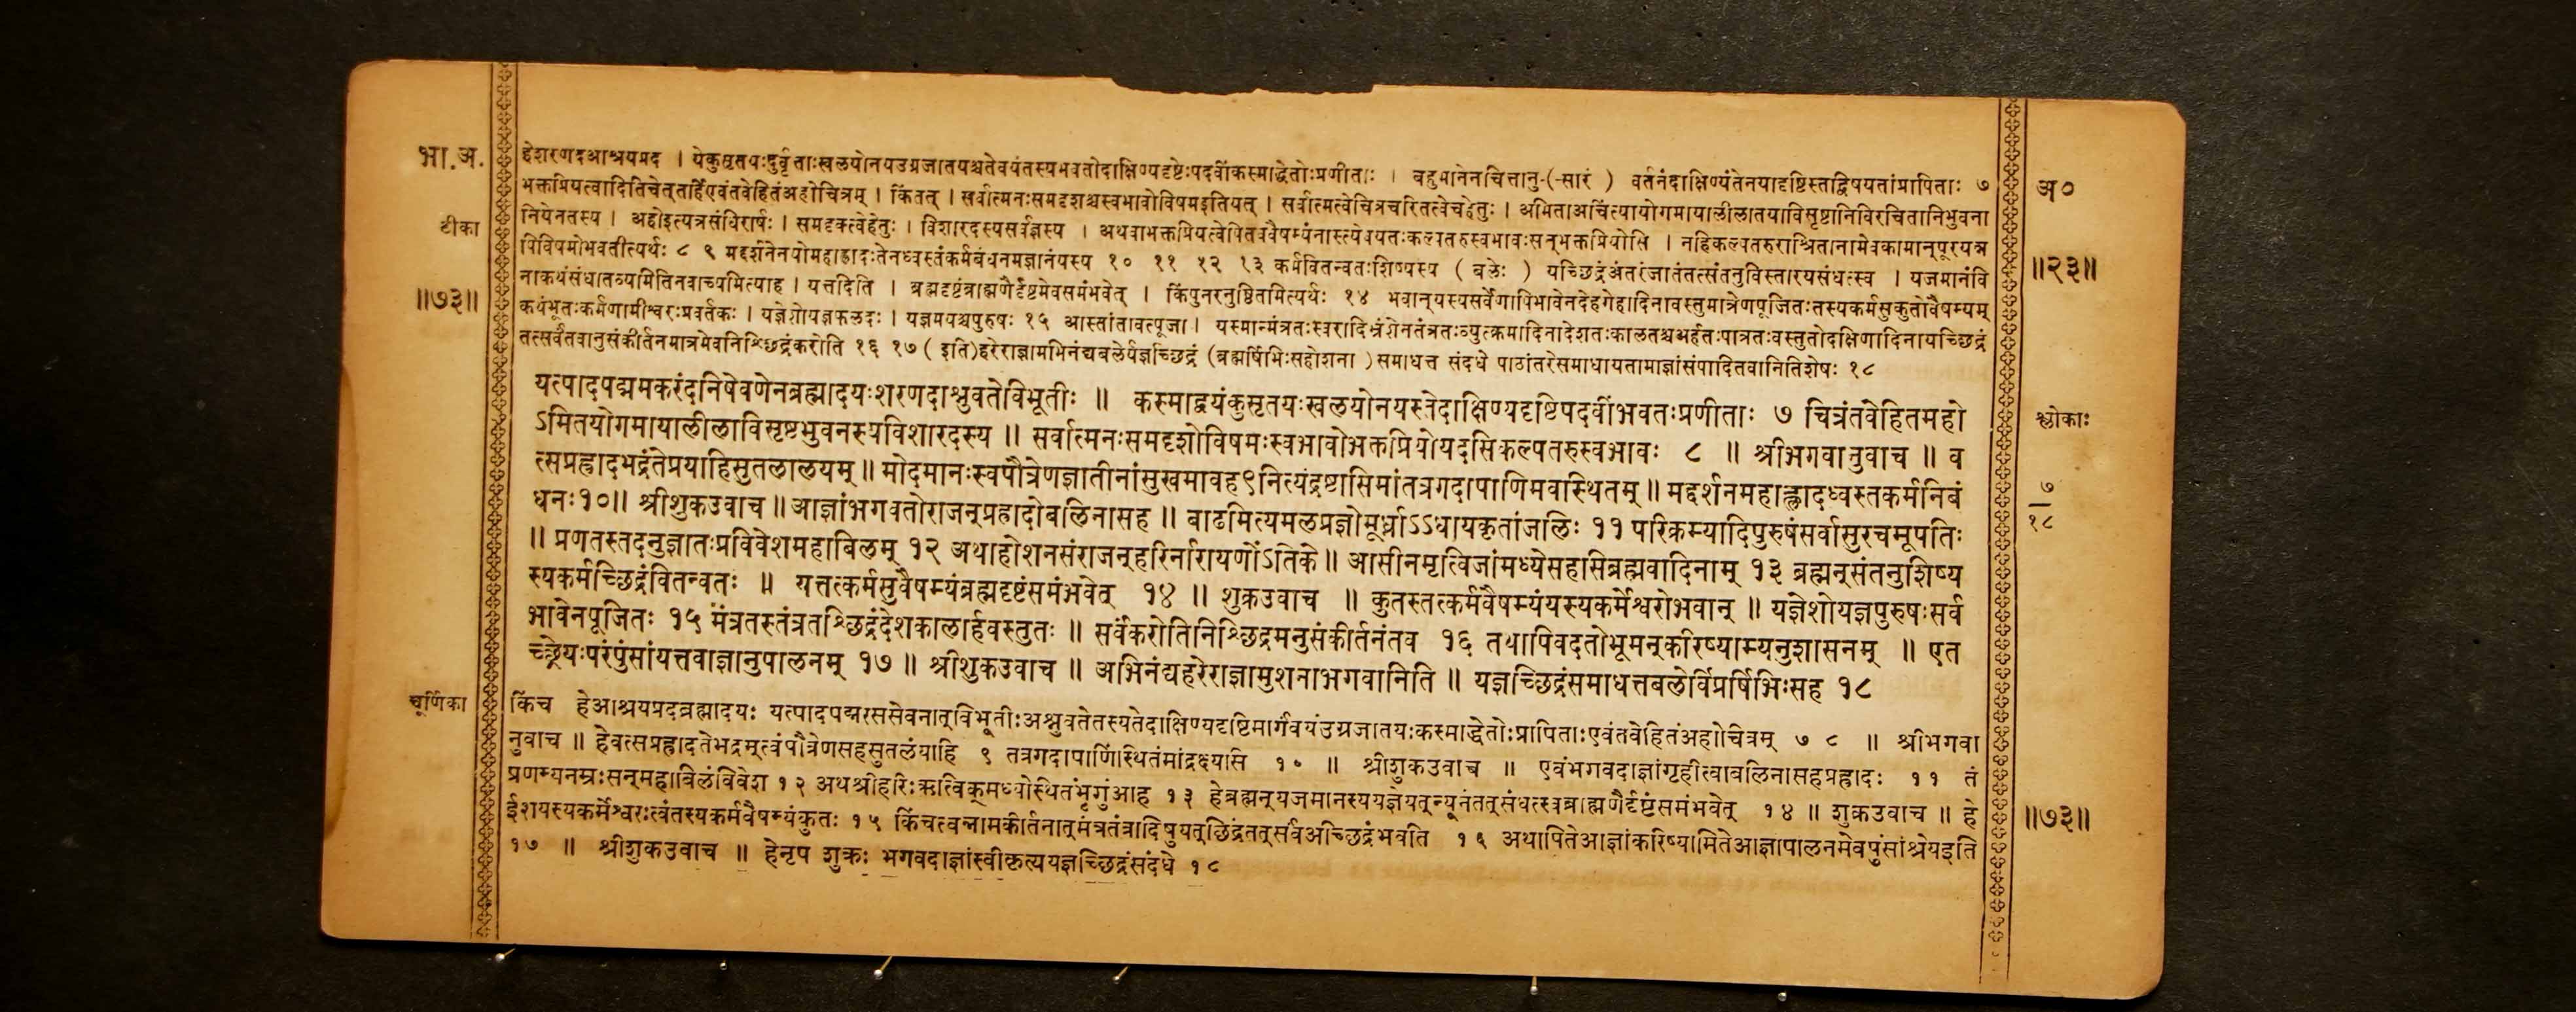 भा.अ.
टीका
॥७३॥
हेशरणदआश्रयप्रद । येकुसृतयःदुर्वृत्ताःखलयोनयउग्रजातयश्चतेवयंतस्यभवतोदाक्षिण्यदृष्टेःपदवींकस्माद्धेतोःप्रणीताः । बहुमानेनचित्तानु-(-सारं ) वर्तनंदाक्षिण्यंतेनयादृष्टिस्तद्विषयतांप्रापिताः ७
भक्तप्रियत्वादितिचेत्तर्हिएवंतवेहितंअहोचित्रम् । किंतत् । सर्वात्मनःसमदृशश्चस्वभावोविषमइतियत् । सर्वात्मत्वेचित्रचरितत्वेचहेतुः । अमिताअचिंत्यायोगमायालीलातयाविसृष्टानिविरचितानिभुवना
नियेनतस्य । अहोइत्यत्रसंधिरार्षः । समदृक्त्वेहेतुः । विशारदस्यसर्वज्ञस्य । अथवाभक्तप्रियत्वेपितववैषम्यंनास्त्येवयतःकल्पतरुस्वभावःसन्भक्तप्रियोसि । नहिकल्पतरुराश्रितानामेवकामान्पूरयन्न
पिविषमोभवतीत्यर्थः ८ ९ मद्दर्शनेनयोमहाह्लादःतेनध्वस्तंकर्मबंधनमज्ञानंयस्य १० ११ १२ १३ कर्मवितन्वतःशिष्यस्य ( बलेः ) यच्छिद्रंअंतरंजातंतत्संतनुविस्तारयसंधत्स्व । यजमानंवि
नाकथंसंधातव्यमितिनवाच्यमित्याह । यत्तदिति । ब्रह्मदृष्टंब्राह्मणैर्दृष्टमेवसमंभवेत् । किंपुनरनुष्ठितमित्यर्थः १४ भवान्यस्यसर्वेणापिभावेनदेहगेहादिनावस्तुमात्रेणपूजितःतस्यकर्मसुकुतोवैषम्यम्
कथंभूतःकर्मणामीश्वरःप्रवर्तकः । यज्ञेशोयज्ञफलदः । यज्ञमयश्चपुरुषः १५ आस्तांतावत्पूजा । यस्मान्मंत्रतःस्वरादिभ्रंशेनतंत्रतःव्युत्क्रमादिनादेशतःकालतश्चअर्हतःपात्रतःवस्तुतोदक्षिणादिनायच्छिद्रं
तत्सर्वंतवानुसंकीर्तनमात्रमेवनिश्छिद्रंकरोति १६ १७ ( इति)हरेराज्ञामभिनंद्यबलेर्यज्ञच्छिद्रं (ब्रह्मर्षिभिःसहोशना ) समाधत्त संदधे पाठांतरेसमाधायतामाज्ञांसंपादितवानितिशेषः १८
यत्पादपद्ममकरंदनिषेवणेनब्रह्मादयःशरणदाश्नुवतेविभूतीः ॥ कस्माद्वयंकुसृतयःखलयोनयस्तेदाक्षिण्यदृष्टिपदवींभवतःप्रणीताः ७ चित्रंतवेहितमहो
ऽमितयोगमायालीलाविसृष्टभुवनस्यविशारदस्य ॥ सर्वात्मनःसमदृशोविषमःस्वभावोभक्तप्रियोयदसिकल्पतरुस्वभावः ८ ॥ श्रीभगवानुवाच ॥ व
त्सप्रह्लादभद्रंतेप्रयाहिसुतलालयम् ॥ मोदमानःस्वपौत्रेणज्ञातीनांसुखमावह९नित्यंद्रष्टासिमांतत्रगदापाणिमवस्थितम् ॥ मद्दर्शनमहाह्लादध्वस्तकर्मनिबं
धनः१०॥ श्रीशुकउवाच ॥ आज्ञांभगवतोराजन्प्रह्लादोबलिनासह ॥ बाढमित्यमलप्रज्ञोमूर्ध्न्याऽऽधायकृतांजलिः ११ परिक्रम्यादिपुरुषंसर्वासुरचमूपतिः
॥ प्रणतस्तदनुज्ञातःप्रविवेशमहाबिलम् १२ अथाहोशनसंराजन्हरिर्नारायणोंऽतिके ॥ आसीनमृत्विजांमध्येसहासिब्रह्मवादिनाम् १३ ब्रह्मन्संतनुशिष्य
स्यकर्मच्छिद्रंवितन्वतः ॥ यत्तत्कर्मसुवैषम्यंब्रह्मदृष्टंसमंभवेत् १४ ॥ शुक्रउवाच ॥ कुतस्तत्कर्मवैषम्यंयस्यकर्मेश्वरोभवान् ॥ यज्ञेशोयज्ञपुरुषःसर्व
भावेनपूजितः १५ मंत्रतस्तंत्रतश्छिद्रंदेशकालार्हवस्तुतः ॥ सर्वंकरोतिनिश्छिद्रमनुसंकीर्तनंतव १६ तथापिवदतोभूमन्करिष्याम्यनुशासनम् ॥ एत
च्छ्रेयःपरंपुंसांयत्तवाज्ञानुपालनम् १७ ॥ श्रीशुकउवाच ॥ अभिनंद्यहरेराज्ञामुशनाभगवानिति ॥ यज्ञच्छिद्रंसमाधत्तबलेर्विप्रर्षिभिःसह १८
चूर्णिका
किंच हेआश्रयप्रदब्रह्मादयः यत्पादपद्मरससेवनात्विभूतीःअश्नुवतेतस्यतेदाक्षिण्यदृष्टिमार्गंवयंउग्रजातयःकस्माद्धेतोःप्रापिताःएवंतवेहितंअहोचित्रम् ७ ८ ॥ श्रीभगवा
नुवाच ॥ हेवत्सप्रह्लादतेभद्रम्त्वंपौत्रेणसहसुतलंयाहि ९ तत्रगदापाणिंस्थितंमांद्रक्ष्यसि १० ॥ श्रीशुकउवाच ॥ एवंभगवदाज्ञांगृहीत्वाबलिनासहप्रह्लादः ११ तं
प्रणम्यनम्रःसन्महाबिलंविवेश १२ अथश्रीहरिःऋत्विक्मध्येस्थितंभृगुंआह १३ हेब्रह्मन्यजमानस्ययज्ञेयत्न्यूनंतत्संधत्स्वब्राह्मणैर्दृष्टंसमंभवेत् १४ ॥ शुक्रउवाच ॥ हे
ईशयस्यकर्मेश्वरःत्वंतस्यकर्मवैषम्यंकुतः १५ किंचत्वन्नामकीर्तनात्मंत्रतंत्रादिषुयत्छिद्रंतत्सर्वंअच्छिद्रंभवति १६ अथापितेआज्ञांकरिष्यामितेआज्ञापालनमेवपुंसांश्रेयइति
१७ ॥ श्रीशुकउवाच ॥ हेनृप शुक्रः भगवदाज्ञांस्वीकृत्ययज्ञच्छिद्रंसंदधे १८
अ०
॥२३॥
श्लोकाः
७
१८
॥७३॥